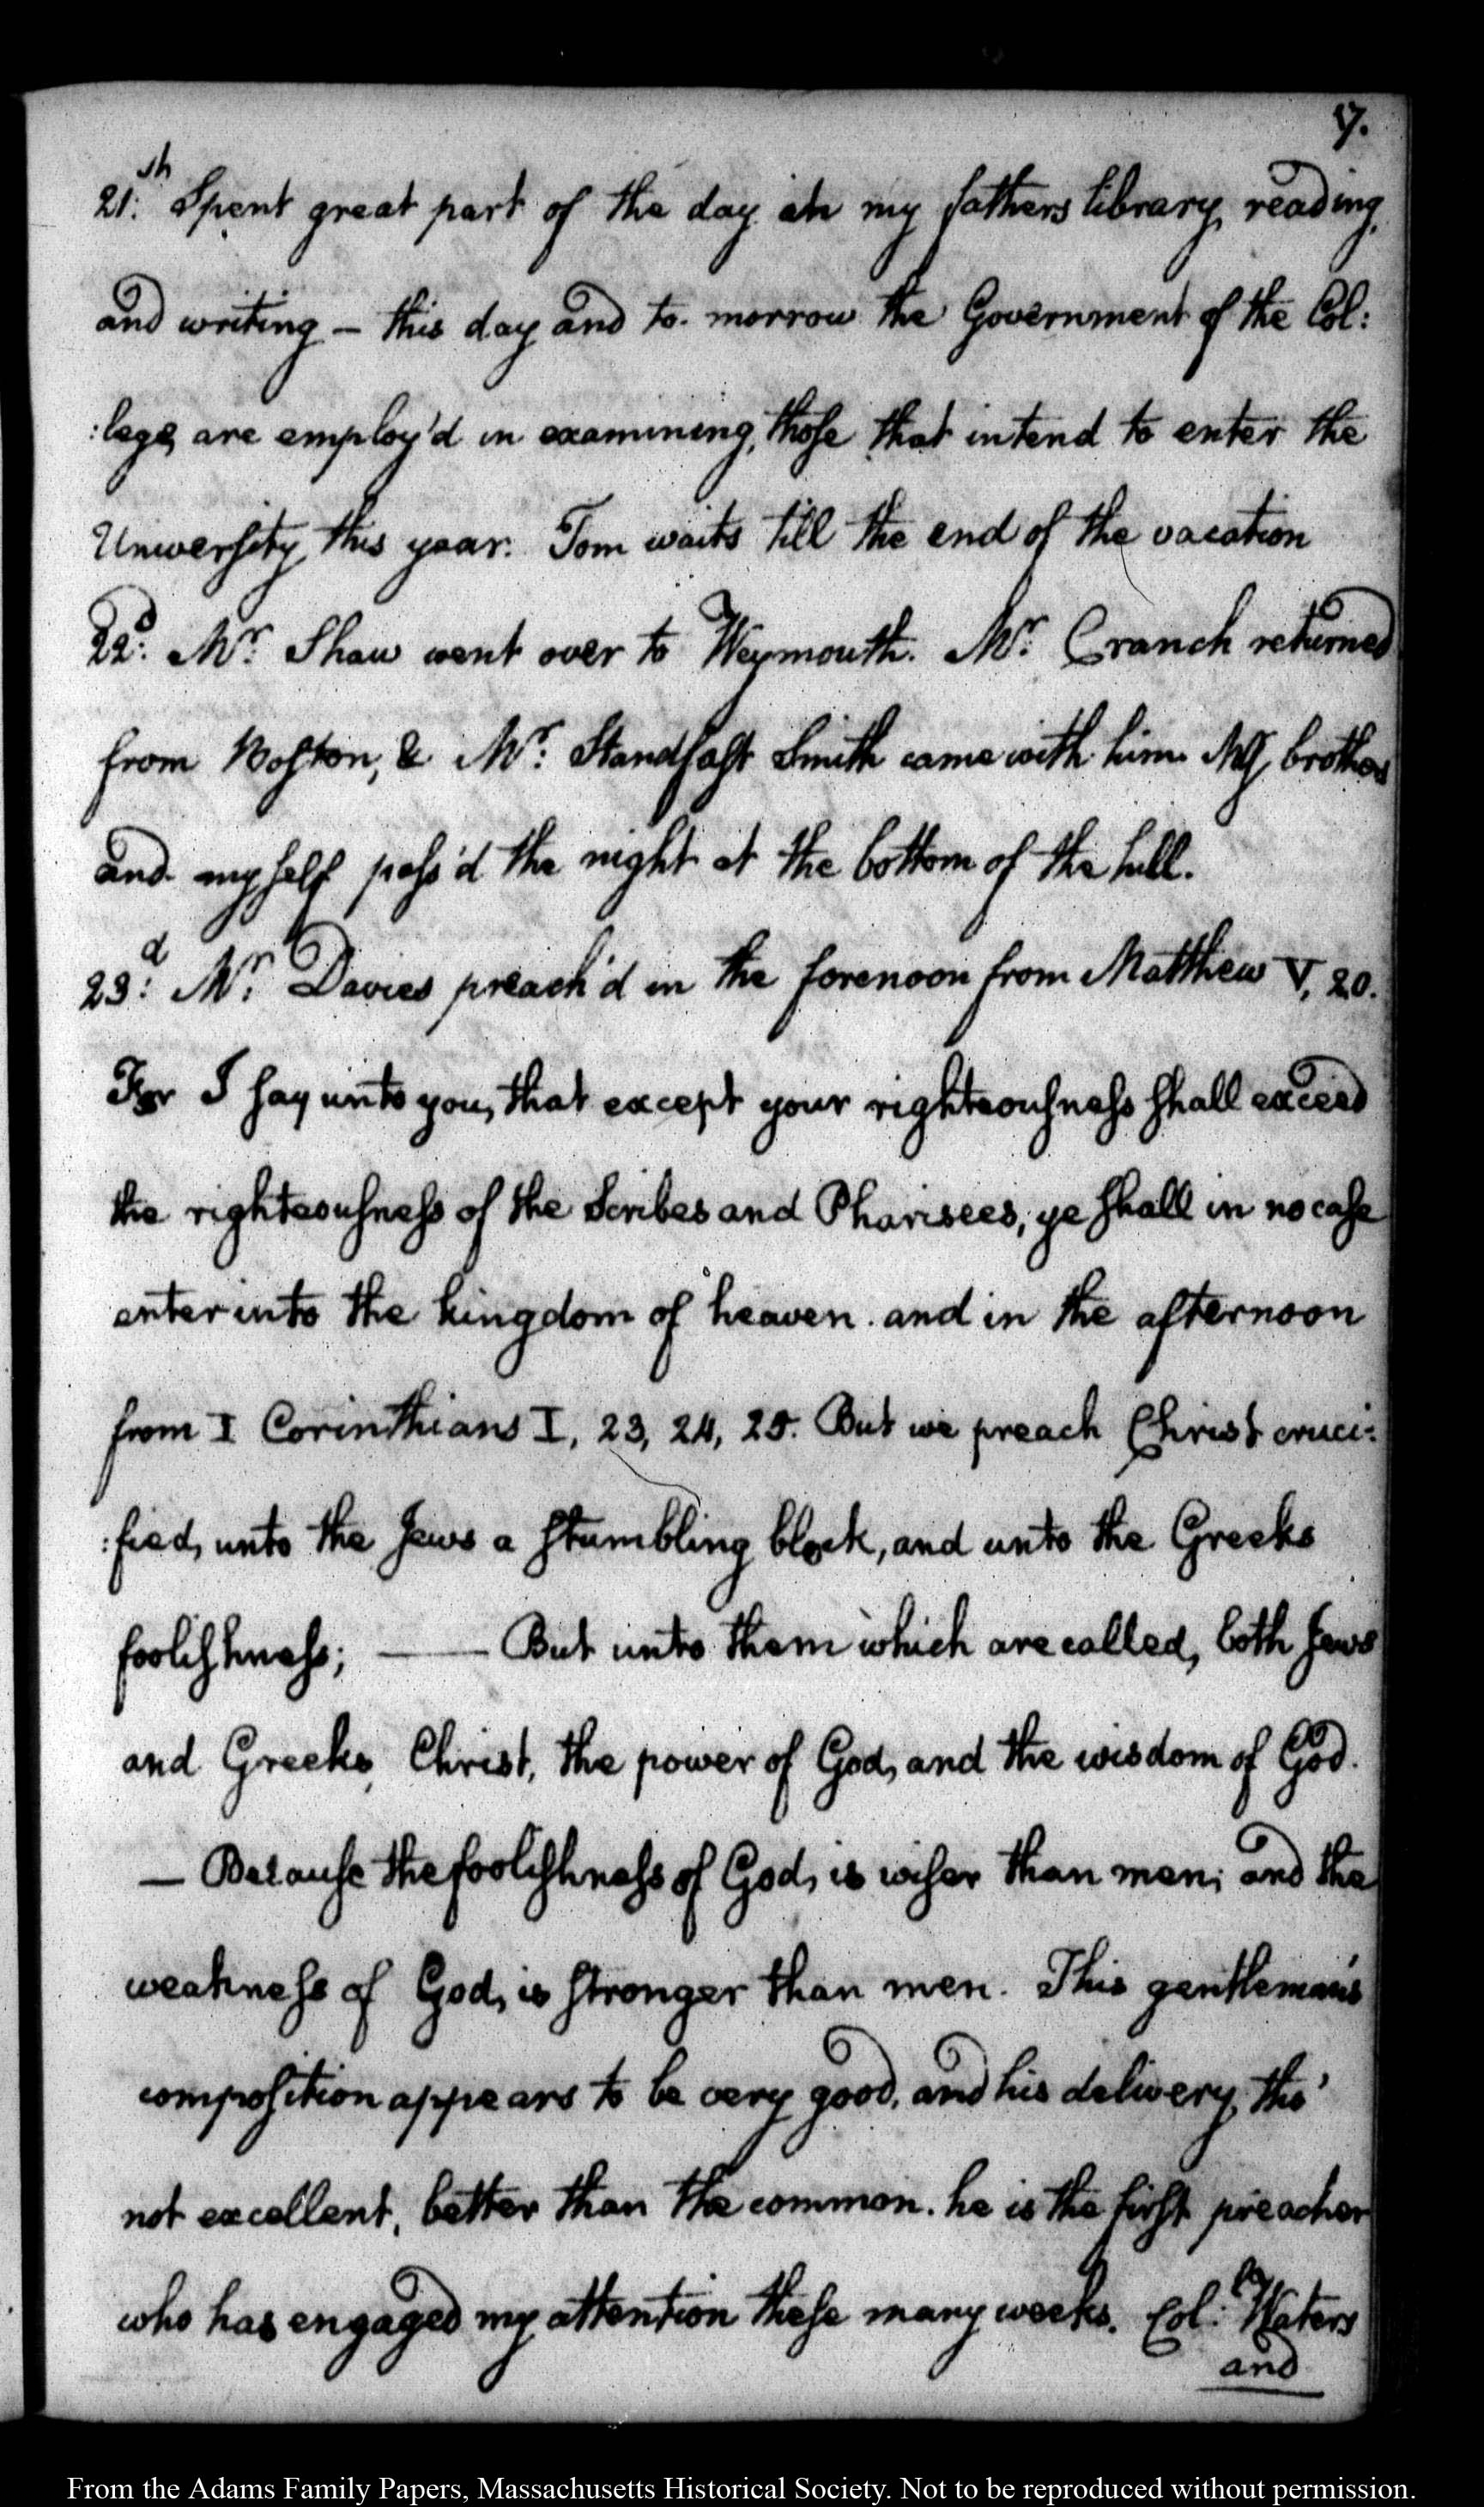 17.
21.th Spent great part of the day in my fathers library, reading,
and writing — this day and to-morrow the Government of the Col:
:lege, are employ'd in examining, those that intend to enter the
University, this year. Tom waits till the end of the vacation
22d. Mr. Shaw went over to Weymouth. Mr. Cranch returned
from Boston, & Mr. Standfast Smith came with him. My brother
and myself pass'd the night at the bottom of the hill.
23d. Mr. Davies preach'd in the forenoon from Matthew V, 20.
For I say unto you, that except your righteousness shall exceed
the righteousness of the Scribes and Pharisees, ye shall in no case
enter into the kingdom of heaven. and in the afternoon
from I Corinthians I, 23, 24, 25. But we preach Christ cruci:
:fied, unto the Jews a stumbling block, and unto the Greeks
foolishness; — But unto them which are called, both Jews
and Greeks, Christ, the power of God, and the wisdom of God.
— Because the foolishness of God, is wiser than men; and the
weakness of God, is stronger than men. This gentleman's
composition appears to be very good, and his delivery, tho'
not excellent, better than the common. he is the first preacher
who has engaged my attention these many weeks. Col: Waters
and
From the Adams Family Papers, Massachusetts Historical Society. Not to be reproduced without permission.